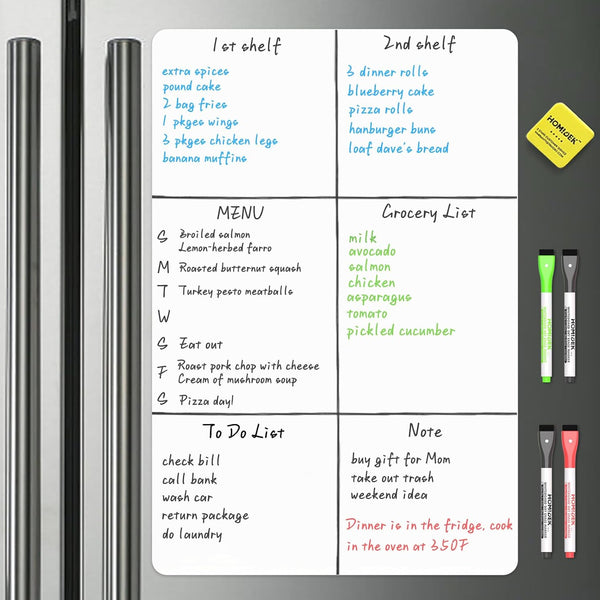 1st shelf
extra spices
pound cake
2 bag fries
1 pkges wings
3 pkges chicken legs
banana muffins
2nd shelf
3 dinner rolls
blueberry cake
pizza rolls
hanburger buns
loaf dave's bread
MENU
S Broiled salmon
Lemon-herbed farro
M Roasted butternut squash
T Turkey pesto meatballs
W
S Eat out
F Roast pork chop with cheese
Cream of mushroom soup
S Pizza day!
Grocery List
milk
avocado
salmon
chicken
asparagus
tomato
pickled cucumber
To Do List
check bill
call bank
wash car
return package
do laundry
Note
buy gift for Mom
take out trash
weekend idea
Dinner is in the fridge, cook
in the oven at 350F
HOMIGEK™
HOMIGEK
HOMIGEK
HOMIGEK
HOMIGEK